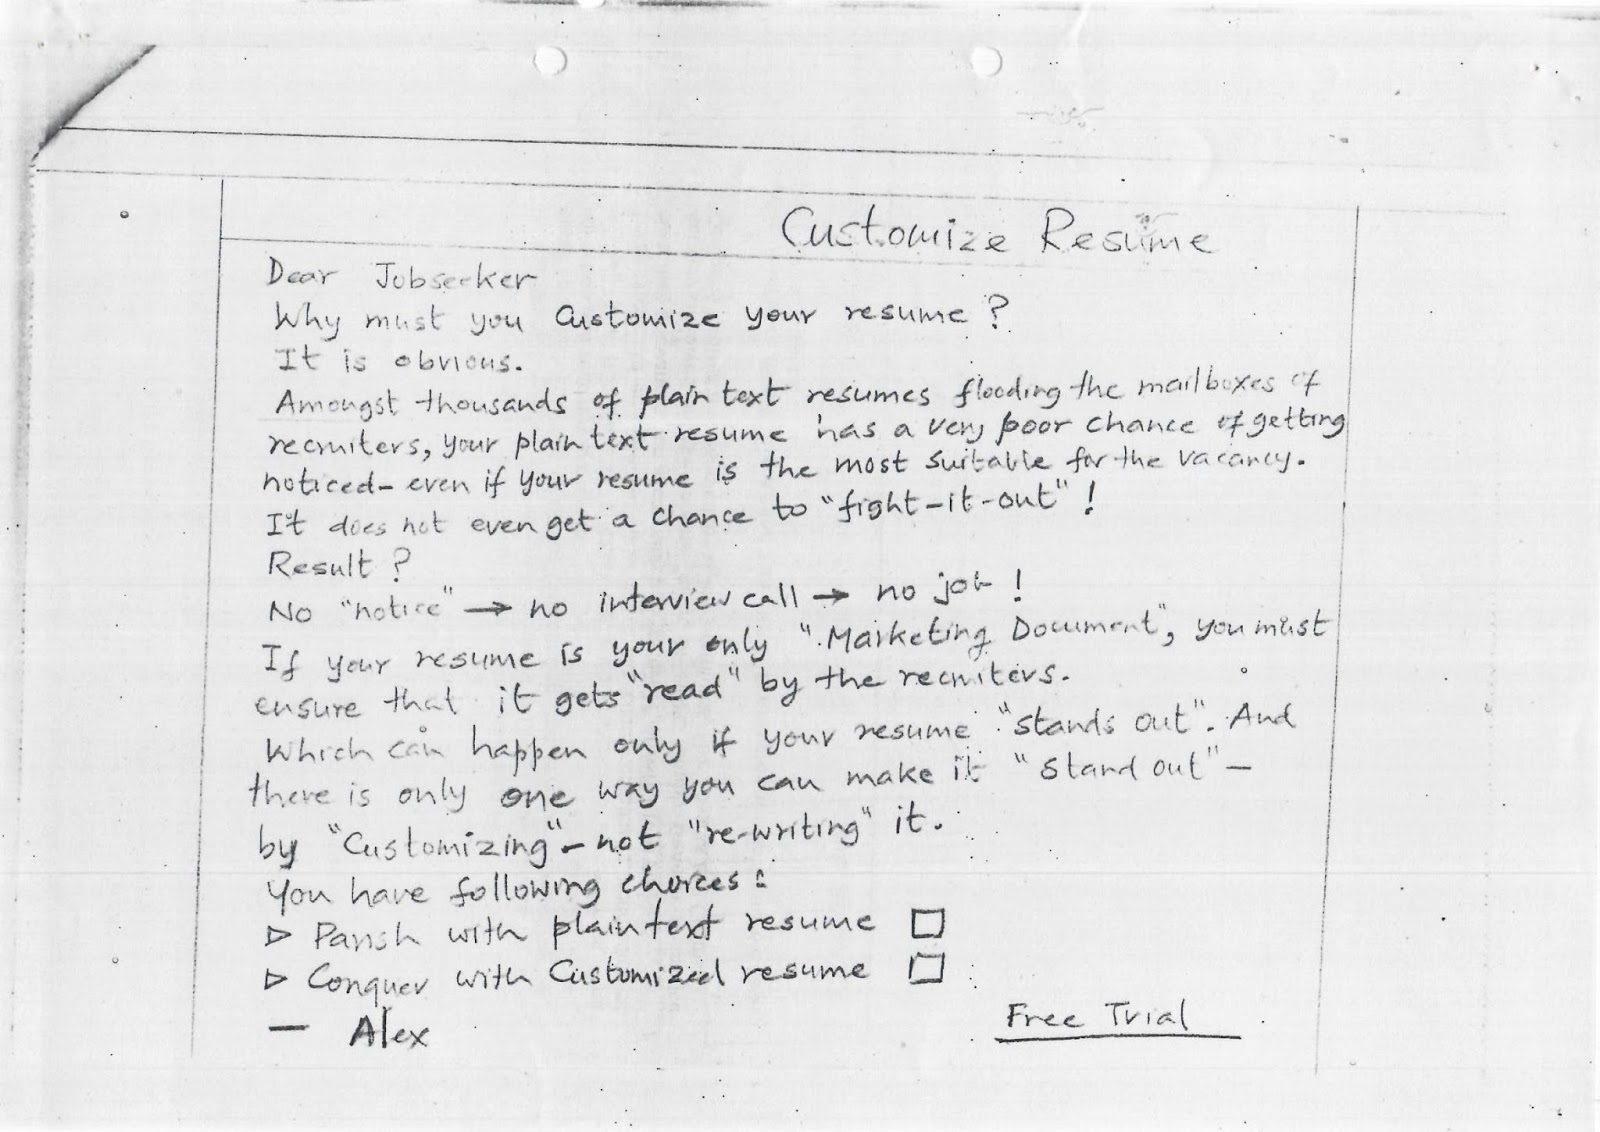 Customize Resume
Dear Jobseeker
Why must you Customize your resume ?
It is obvious.
Amongst thousands of plain text resumes flooding the mailboxes of
recruiters, your plain text resume has a very poor chance of getting
noticed - even if your resume is the most suitable for the vacancy.
It does not even get a chance to "fight-it-out" !
Result ?
No "notice" → no interview call → no job !
If your resume is your only "Marketing Document", you must
ensure that it gets "read" by the recruiters.
Which can happen only if your resume "stands out". And
there is only one way you can make it "stand out" -
by "Customizing" - not "re-writing" it.
You have following choices :
▷ Parish with plain text resume ☐
▷ Conquer with Customized resume ☐
— Alex
Free Trial